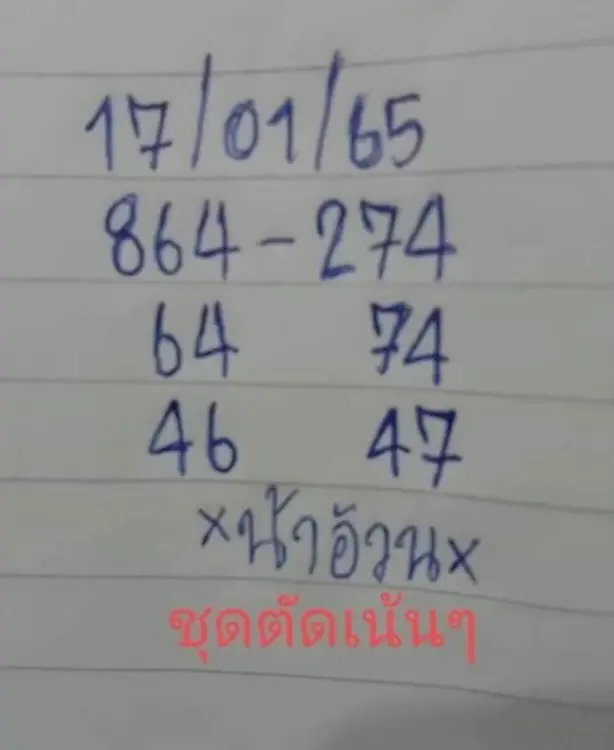 17/01/65
864-274
64 74
46 47
×น้าอ้วน×
ชุดตัดเน้นๆ